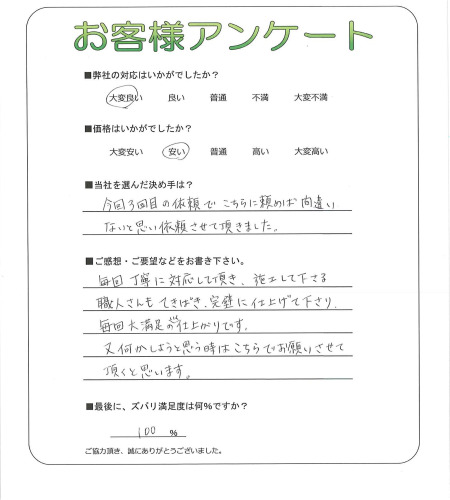 お客様アンケート
■弊社の対応はいかがでしたか？
大変良い 良い 普通 不満 大変不満
■価格はいかがでしたか？
大変安い 安い 普通 高い 大変高い
■当社を選んだ決め手は？
今回3回目の依頼で こちらに頼めば間違い
ないと思い依頼させて頂きました。
■ご感想・ご要望などをお書き下さい。
毎回丁寧に対応して頂き、施工して下さる
職人さんも てきぱき、完璧に仕上げて下さり、
毎回大満足の仕上がりです。
又何かしようと思う時はこちらでお願いさせて
頂くと思います。
■最後に、ズバリ満足度は何%ですか？
100 %
ご協力頂き、誠にありがとうございました。